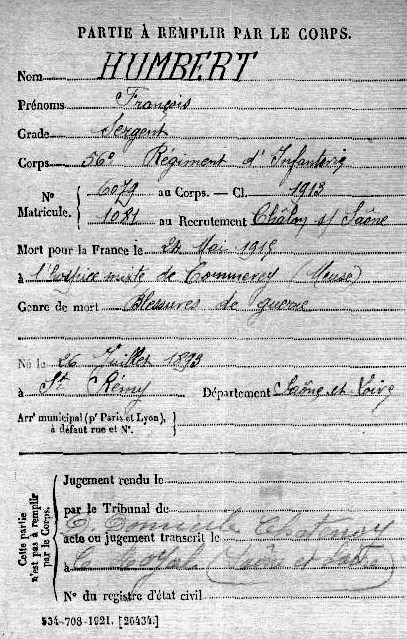 PARTIE À REMPLIR PAR LE CORPS.
Nom HUMBERT
Prénoms François
Grade Sergent
Corps 56e Régiment d'Infanterie
N° Matricule. { 6079 au Corps. — Cl. 1913
1081 au Recrutement Châlon s/ Saône
Mort pour la France le 24 Mai 1915
à l'hospice mixte de Commercy (Meuse)
Genre de mort Blessures de guerre
Né le 26 Juillet 1893
à St Rémy Département Saône et Loire
Arrt municipal (pr Paris et Lyon), à défaut rue et N°. }
Cette partie n'est pas à remplir par le Corps. {
Jugement rendu le
par le Tribunal de
acte ou jugement transcrit le
à
N° du registre d'état civil
534-708-1921. [26434.]